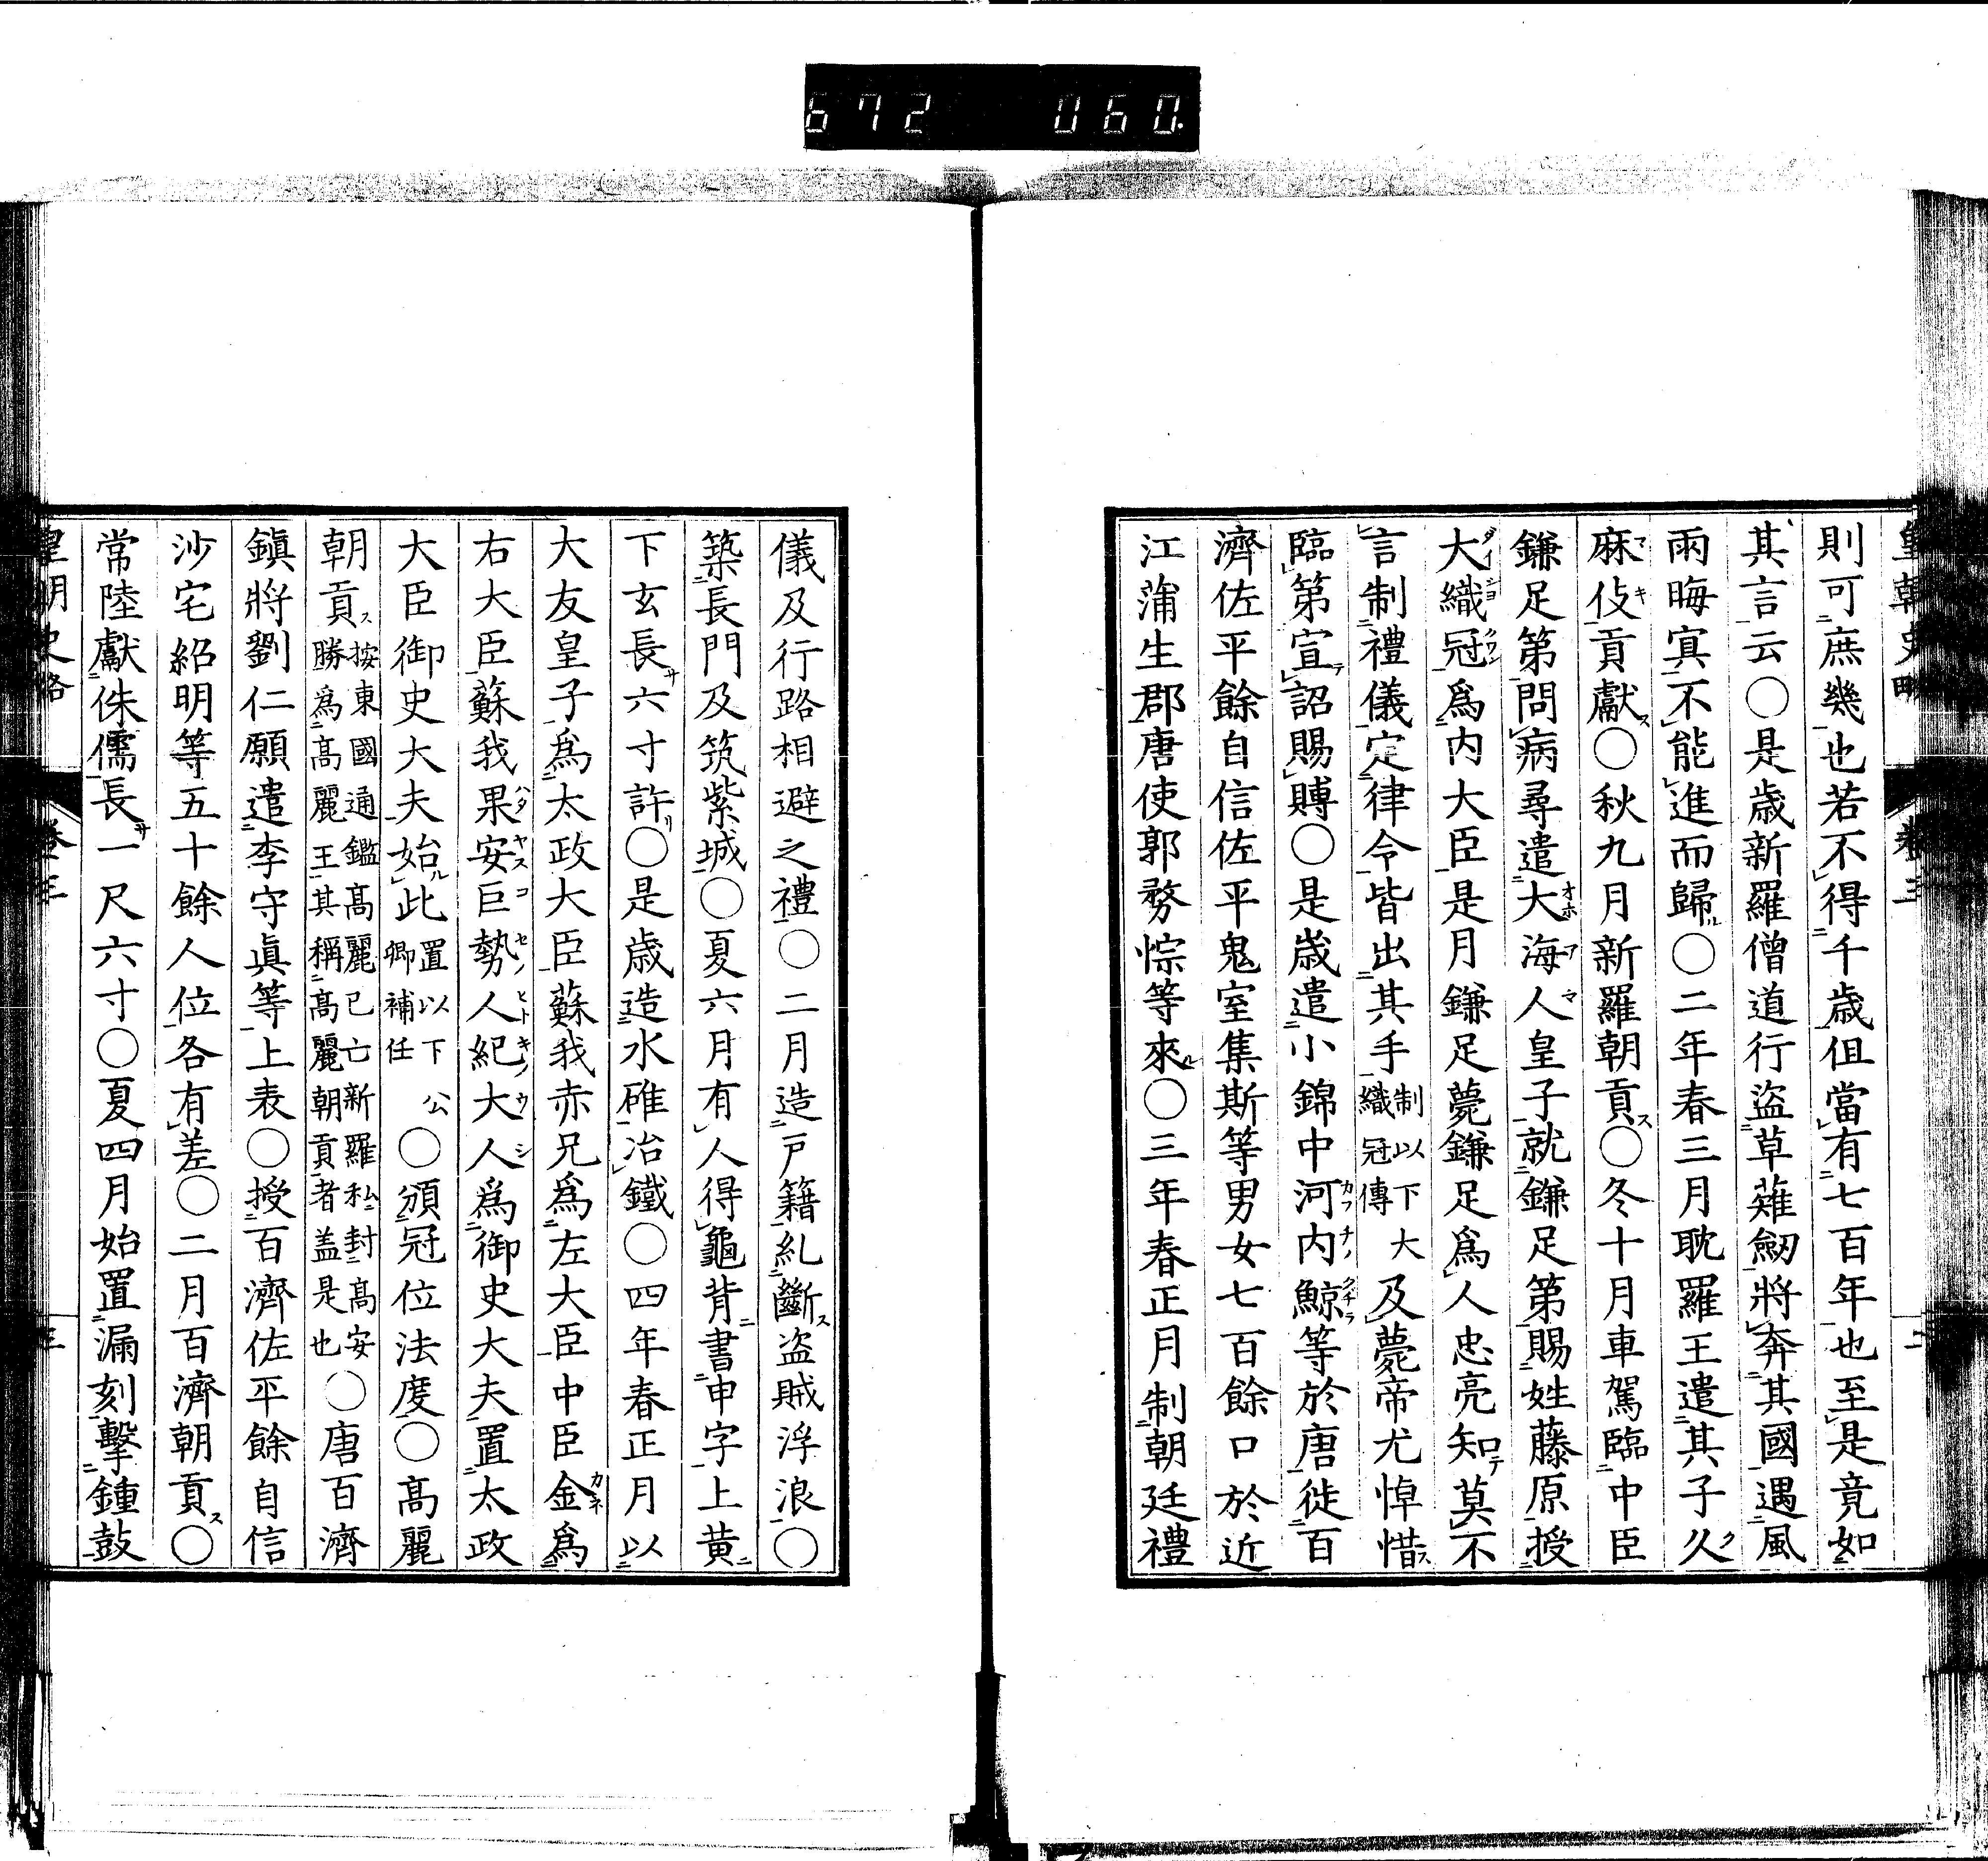 672 060.
皇朝史略 卷三 二
則可庶幾也若不得千歳但當有七百年也至是竟如
其言云○是歳新羅僧道行盗草薙劒將奔其國遇風
雨晦冥不能進而歸○二年春三月耽羅王遣其子久
麻伎貢獻○秋九月新羅朝貢○冬十月車駕臨中臣
鎌足第問病尋遣大海人皇子就鎌足第賜姓藤原授
大織冠爲内大臣是月鎌足薨鎌足爲人忠亮知莫不
言制禮儀定律令皆出其手制以下大織冠傳及薨帝尤悼惜
臨第宣詔賜賻○是歳遣小錦中河内鯨等於唐徙百
濟佐平餘自信佐平鬼室集斯等男女七百餘口於近
江蒲生郡唐使郭務悰等來○三年春正月制朝廷禮
儀及行路相避之禮○二月造戸籍糺斷盗賊浮浪○
築長門及筑紫城○夏六月有人得龜背書申字上黄
下玄長六寸許○是歳造水碓冶鐵○四年春正月以
大友皇子爲太政大臣蘇我赤兄爲左大臣中臣金爲
右大臣蘇我果安巨勢人紀大人爲御史大夫置太政
大臣御史大夫始此置以下公卿補任○頒冠位法度○髙麗
朝貢按東國通鑑髙麗已亡新羅私封髙安勝爲髙麗王其稱髙麗朝貢者盖是也○唐百濟
鎭將劉仁願遣李守眞等上表○授百濟佐平餘自信
沙宅紹明等五十餘人位各有差○二月百濟朝貢○
常陸獻侏儒長一尺六寸○夏四月始置漏刻擊鍾鼓
皇朝史略 卷三 三